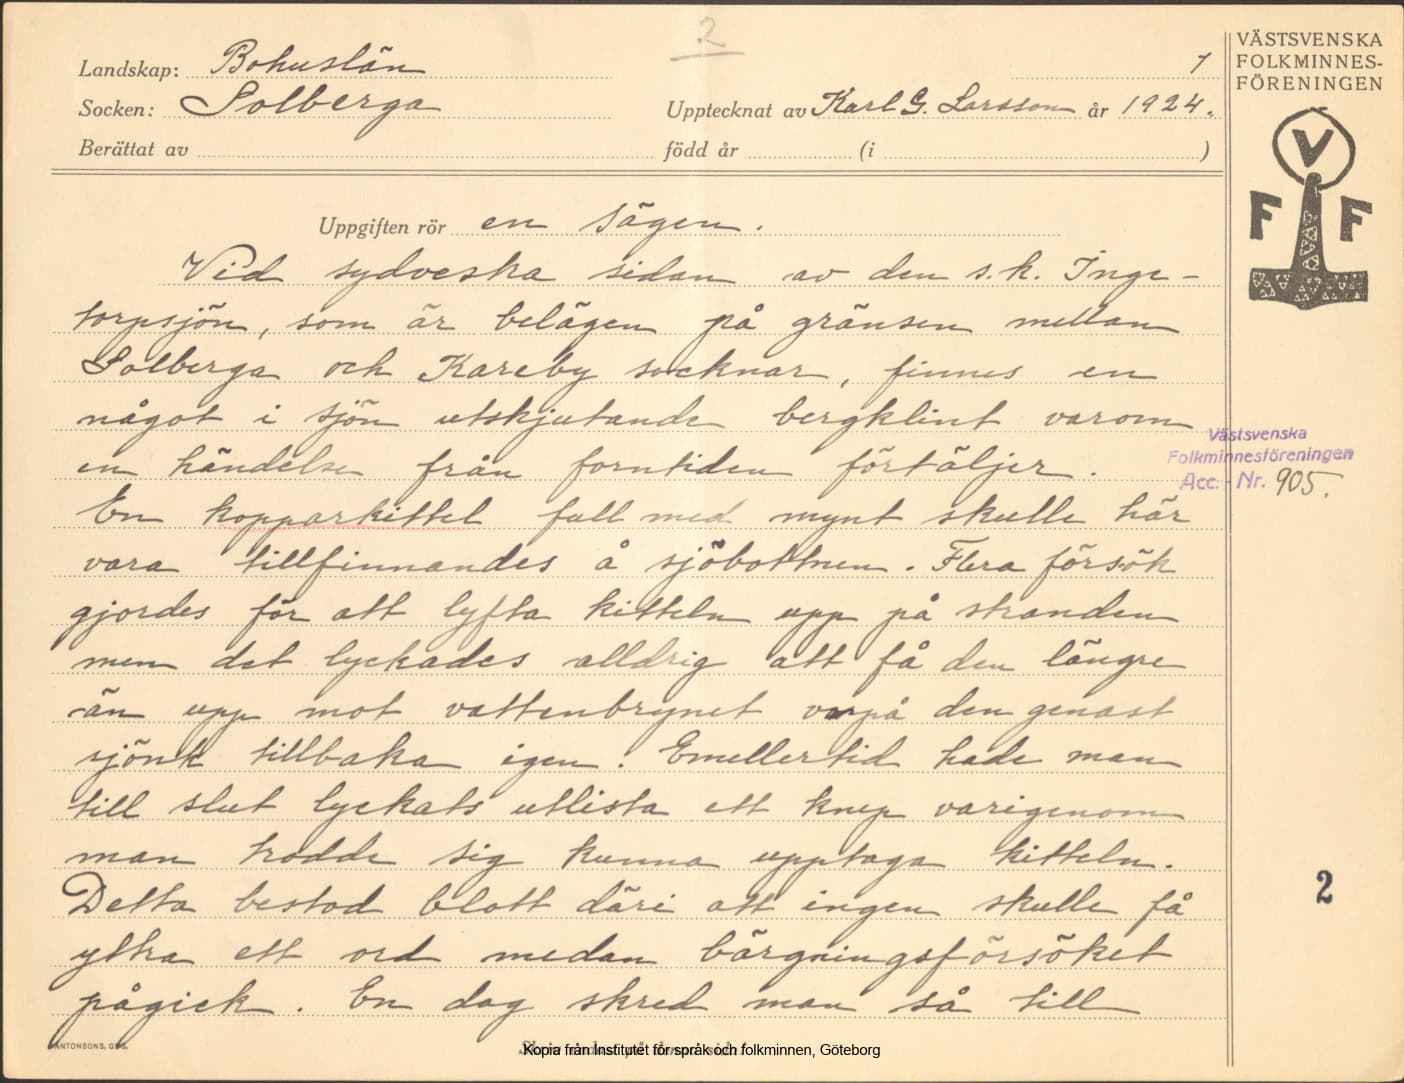 2
VÄSTSVENSKA
FOLKMINNES-
FÖRENINGEN
V
F F
Landskap: Bohuslän 1
Socken: Solberga Upptecknat av Karl G. Larsson år 1924.
Berättat av född år (i )
Uppgiften rör en sägen.
Vid sydveska sidan av den s.k. Inge-
torpsjön, som är belägen på gränsen mellan
Solberga och Kareby socknar, finnes en
något i sjön utskjutande bergklint varom
en händelse från forntiden förtäljer.
Västsvenska
Folkminnesföreningen
Acc. - Nr. 905.
En kopparkittel full med mynt skulle här
vara tillfinnandes å sjöbottnen. Flera försök
gjordes för att lyfta kitteln upp på stranden
men det lyckades alldrig att få den längre
än upp mot vattenbrynet varpå den genast
sjönk tillbaka igen. Emellertid hade man
till slut lyckats utlista ett knep varigenom
man trodde sig kunna upptaga kitteln.
Detta bestod blott däri att ingen skulle få
yttra ett ord medan bärgningsförsöket
pågick. En dag skred man så till
2
ANTONSONS, GBG.
Kopia från Institutet för språk och folkminnen, Göteborg